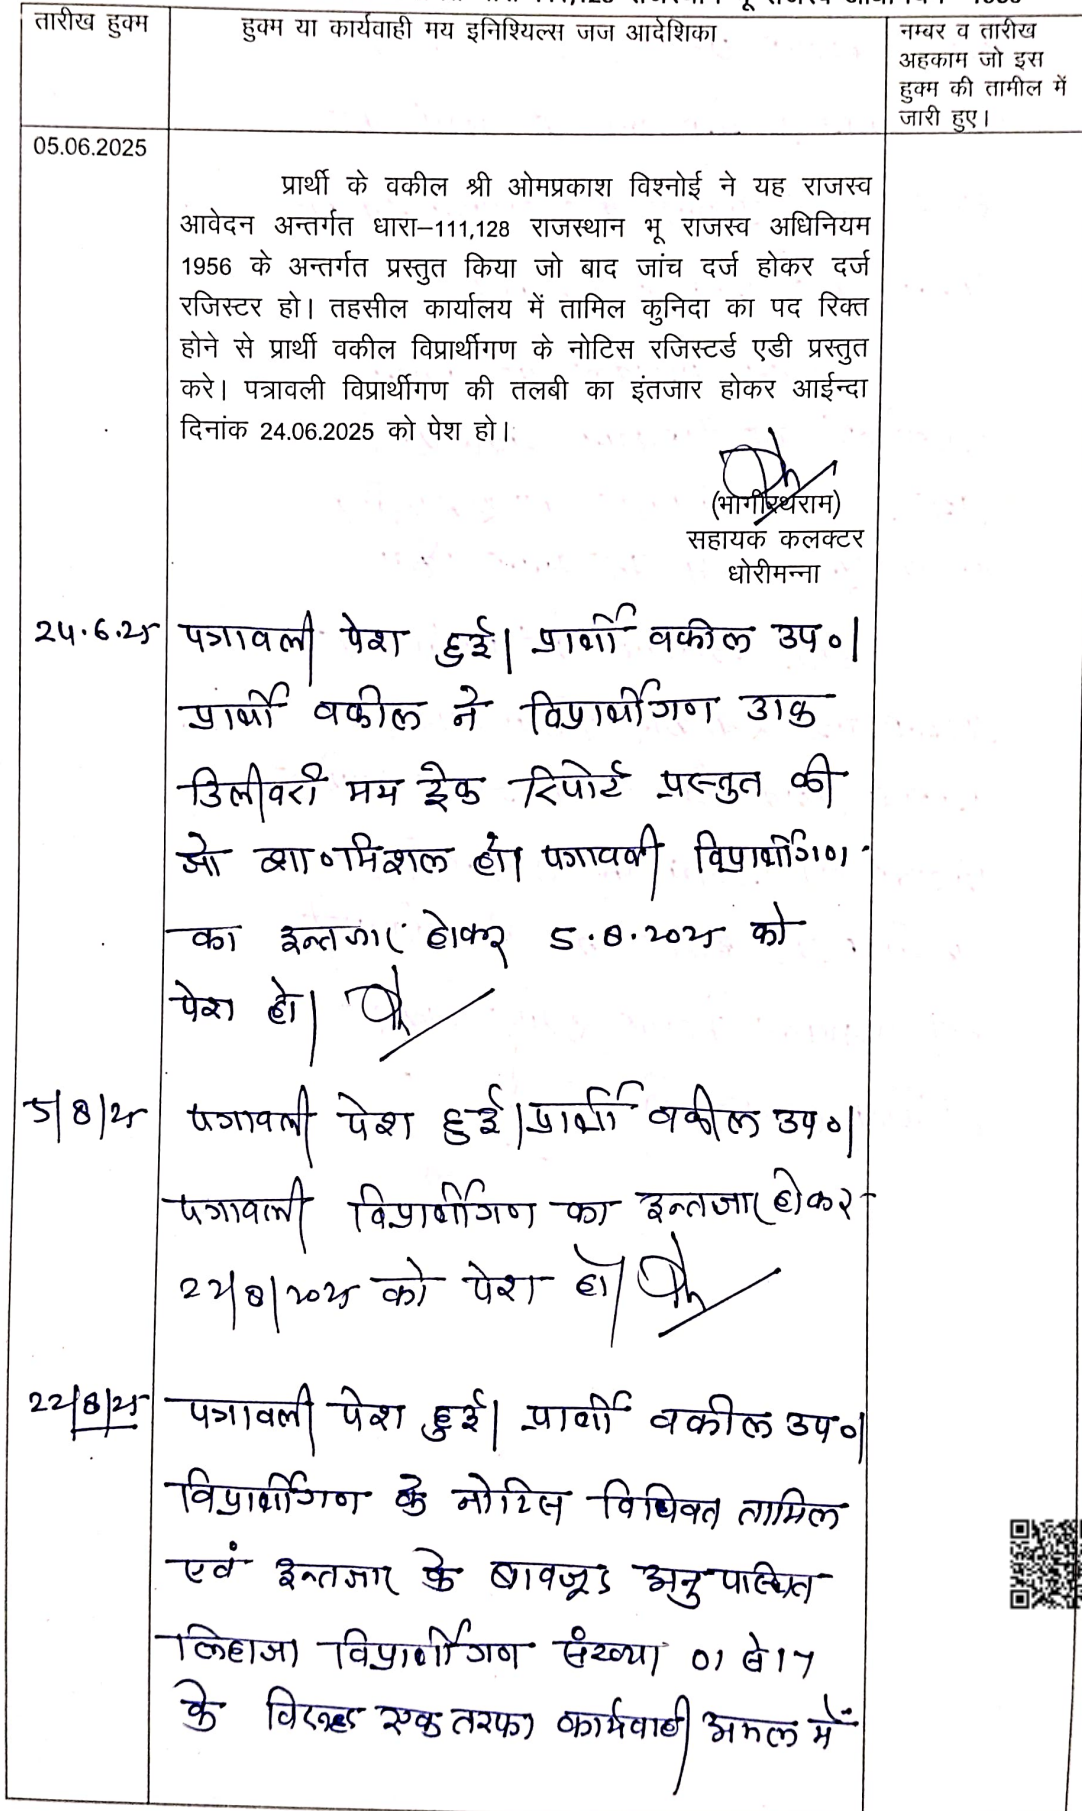 तारीख हुक्म
हुक्म या कार्यवाही मय इनिश्यिल्स जज आदेशिका.
नम्बर व तारीख
अहकाम जो इस
हुक्म की तामील में
जारी हुए।
05.06.2025
प्रार्थी के वकील श्री ओमप्रकाश विश्नोई ने यह राजस्व
आवेदन अन्तर्गत धारा–111,128 राजस्थान भू राजस्व अधिनियम
1956 के अन्तर्गत प्रस्तुत किया जो बाद जांच दर्ज होकर दर्ज
रजिस्टर हो। तहसील कार्यालय में तामिल कुनिदा का पद रिक्त
होने से प्रार्थी वकील विप्रार्थीगण के नोटिस रजिस्टर्ड एडी प्रस्तुत
करे। पत्रावली विप्रार्थीगण की तलबी का इंतजार होकर आईन्दा
दिनांक 24.06.2025 को पेश हो।
(भागीरथराम)
सहायक कलक्टर
धोरीमन्ना
24.6.25 पत्रावली पेश हुई। प्रार्थी वकील उप०।
प्रार्थी वकील ने विप्रार्थीगण डाक
डिलीवरी मय ट्रेक रिपोर्ट प्रस्तुत की
जो शा०मिशल हो। पत्रावली विप्रार्थीगण
का इन्तजार होकर 5.8.2025 को
पेश हो।
5/8/25 पत्रावली पेश हुई। प्रार्थी वकील उप०।
पत्रावली विप्रार्थीगण का इन्तजार होकर
22/8/2025 को पेश हो।
22/8/25 पत्रावली पेश हुई। प्रार्थी वकील उप०।
विप्रार्थीगण के नोटिस विधिवत तामिल
एवं इन्तजार के बावजूद अनुपस्थित
लिहाजा विप्रार्थीगण संख्या 01 से 17
के विरूद्ध एक तरफा कार्यवाही अमल में